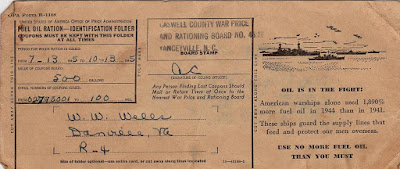 OPA Form R-1108
UNITED STATES OF AMERICA OFFICE OF PRICE ADMINISTRATION
FUEL OIL RATION—IDENTIFICATION FOLDER
COUPONS MUST BE KEPT WITH THIS FOLDER
AT ALL TIMES
7-13 45 10-13 45
500
02775001 100
W. W. Wells
Danville, Va
R-4
CASWELL COUNTY WAR PRICE
AND RATIONING BOARD NO.
YANCEYVILLE, N. C.
BOARD STAMP
Any Person Finding Lost Coupons Should
Mail or Return Them at Once to the
Nearest War Price and Rationing Board
OIL IS IN THE FIGHT:
American warships alone used 1,890%
more fuel oil in 1944 than in 1941.
These ships guard the supply lines that
feed and protect our men overseas.
USE NO MORE FUEL OIL
THAN YOU MUST